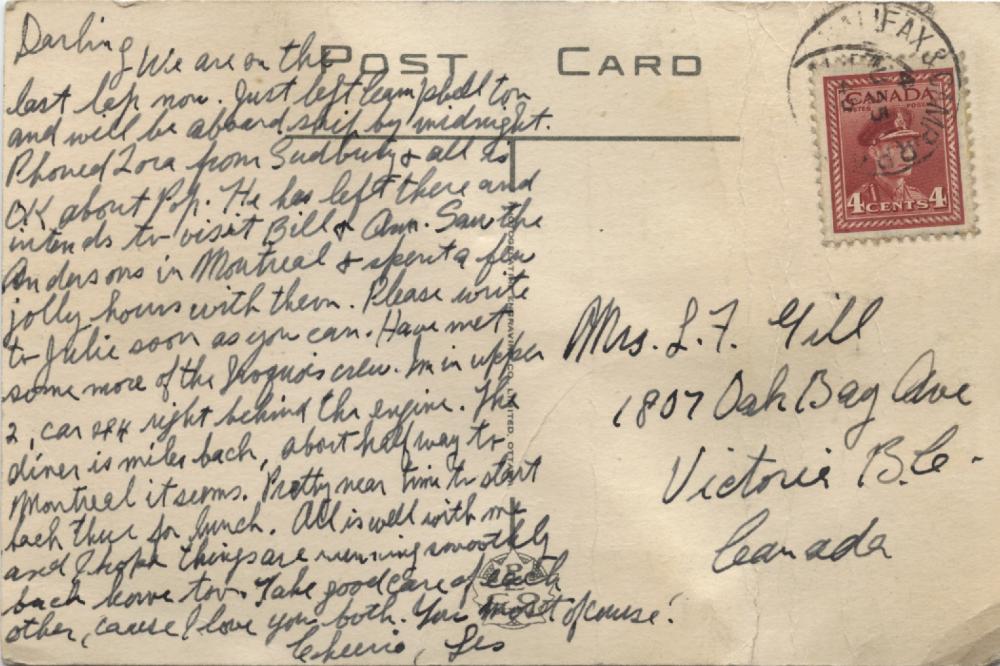 POST CARD
HALIFAX &
R.P.O.
CANADA
POSTES POSTAGE
4 CENTS 4
Darling, We are on the
last lap now. Just left Campbellton
and will be aboard ship by midnight.
Phoned Lora from Sudbury & all is
OK about Pop. He has left there and
intends to visit Bill & Ann. Saw the
Andersons in Montreal & spent a few
jolly hours with them. Please write
to Julie soon as you can. Have met
some more of the Iroquois crew. I'm in upper
2, car 244 right behind the engine. The
diner is miles back, about half way to
Montreal it seems. Pretty near time to start
back there for lunch. All is well with me
and I hope things are running smoothly
back home too. Take good care of each
other, cause I love you both. You most of course!
Cheerio, Les
Mrs. L. F. Gill
1807 Oak Bay Ave
Victoria B.C.
Canada